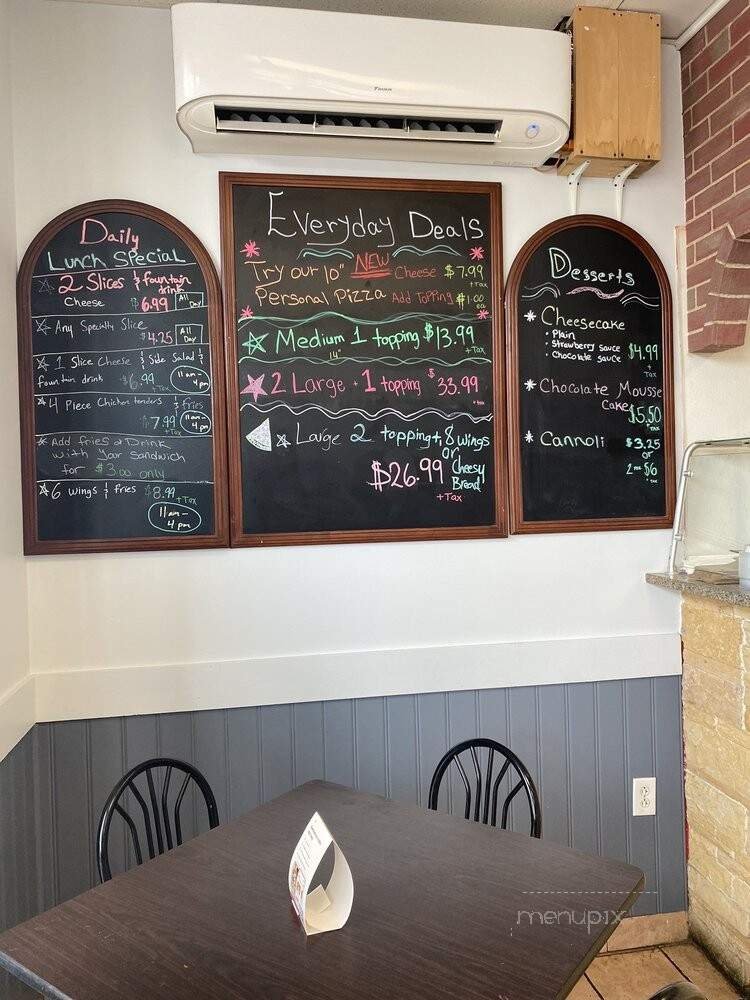 DAIKIN
Daily
Lunch Special
2 Slices & fountain drink
Cheese $6.99 All Day
Any Specialty Slice
$4.25 All Day
1 Slice Cheese & Side Salad &
fountain drink $6.99 +Tax 11am-4pm
4 Piece Chicken tenders & fries
$7.99 +Tax 11am-4pm
Add fries & Drink
with Your Sandwich
for $3.00 only
6 wings & fries $8.99 +Tax
11am-
4pm
Everyday Deals
Try our 10" NEW Cheese $7.99
+Tax
Personal Pizza Add Topping $1.00
ea
Medium 1 topping $13.99
14" +Tax
2 Large • 1 topping $33.99
+Tax
Large 2 topping + 8 wings
or
$26.99 Cheesy
Bread
+Tax
Desserts
Cheesecake
• Plain
• Strawberry sauce
• Chocolate sauce $4.99
+
Tax
Chocolate Mousse
Cake $5.50
+Tax
Cannoli $3.25
or
2 for $6
+Tax
menupix